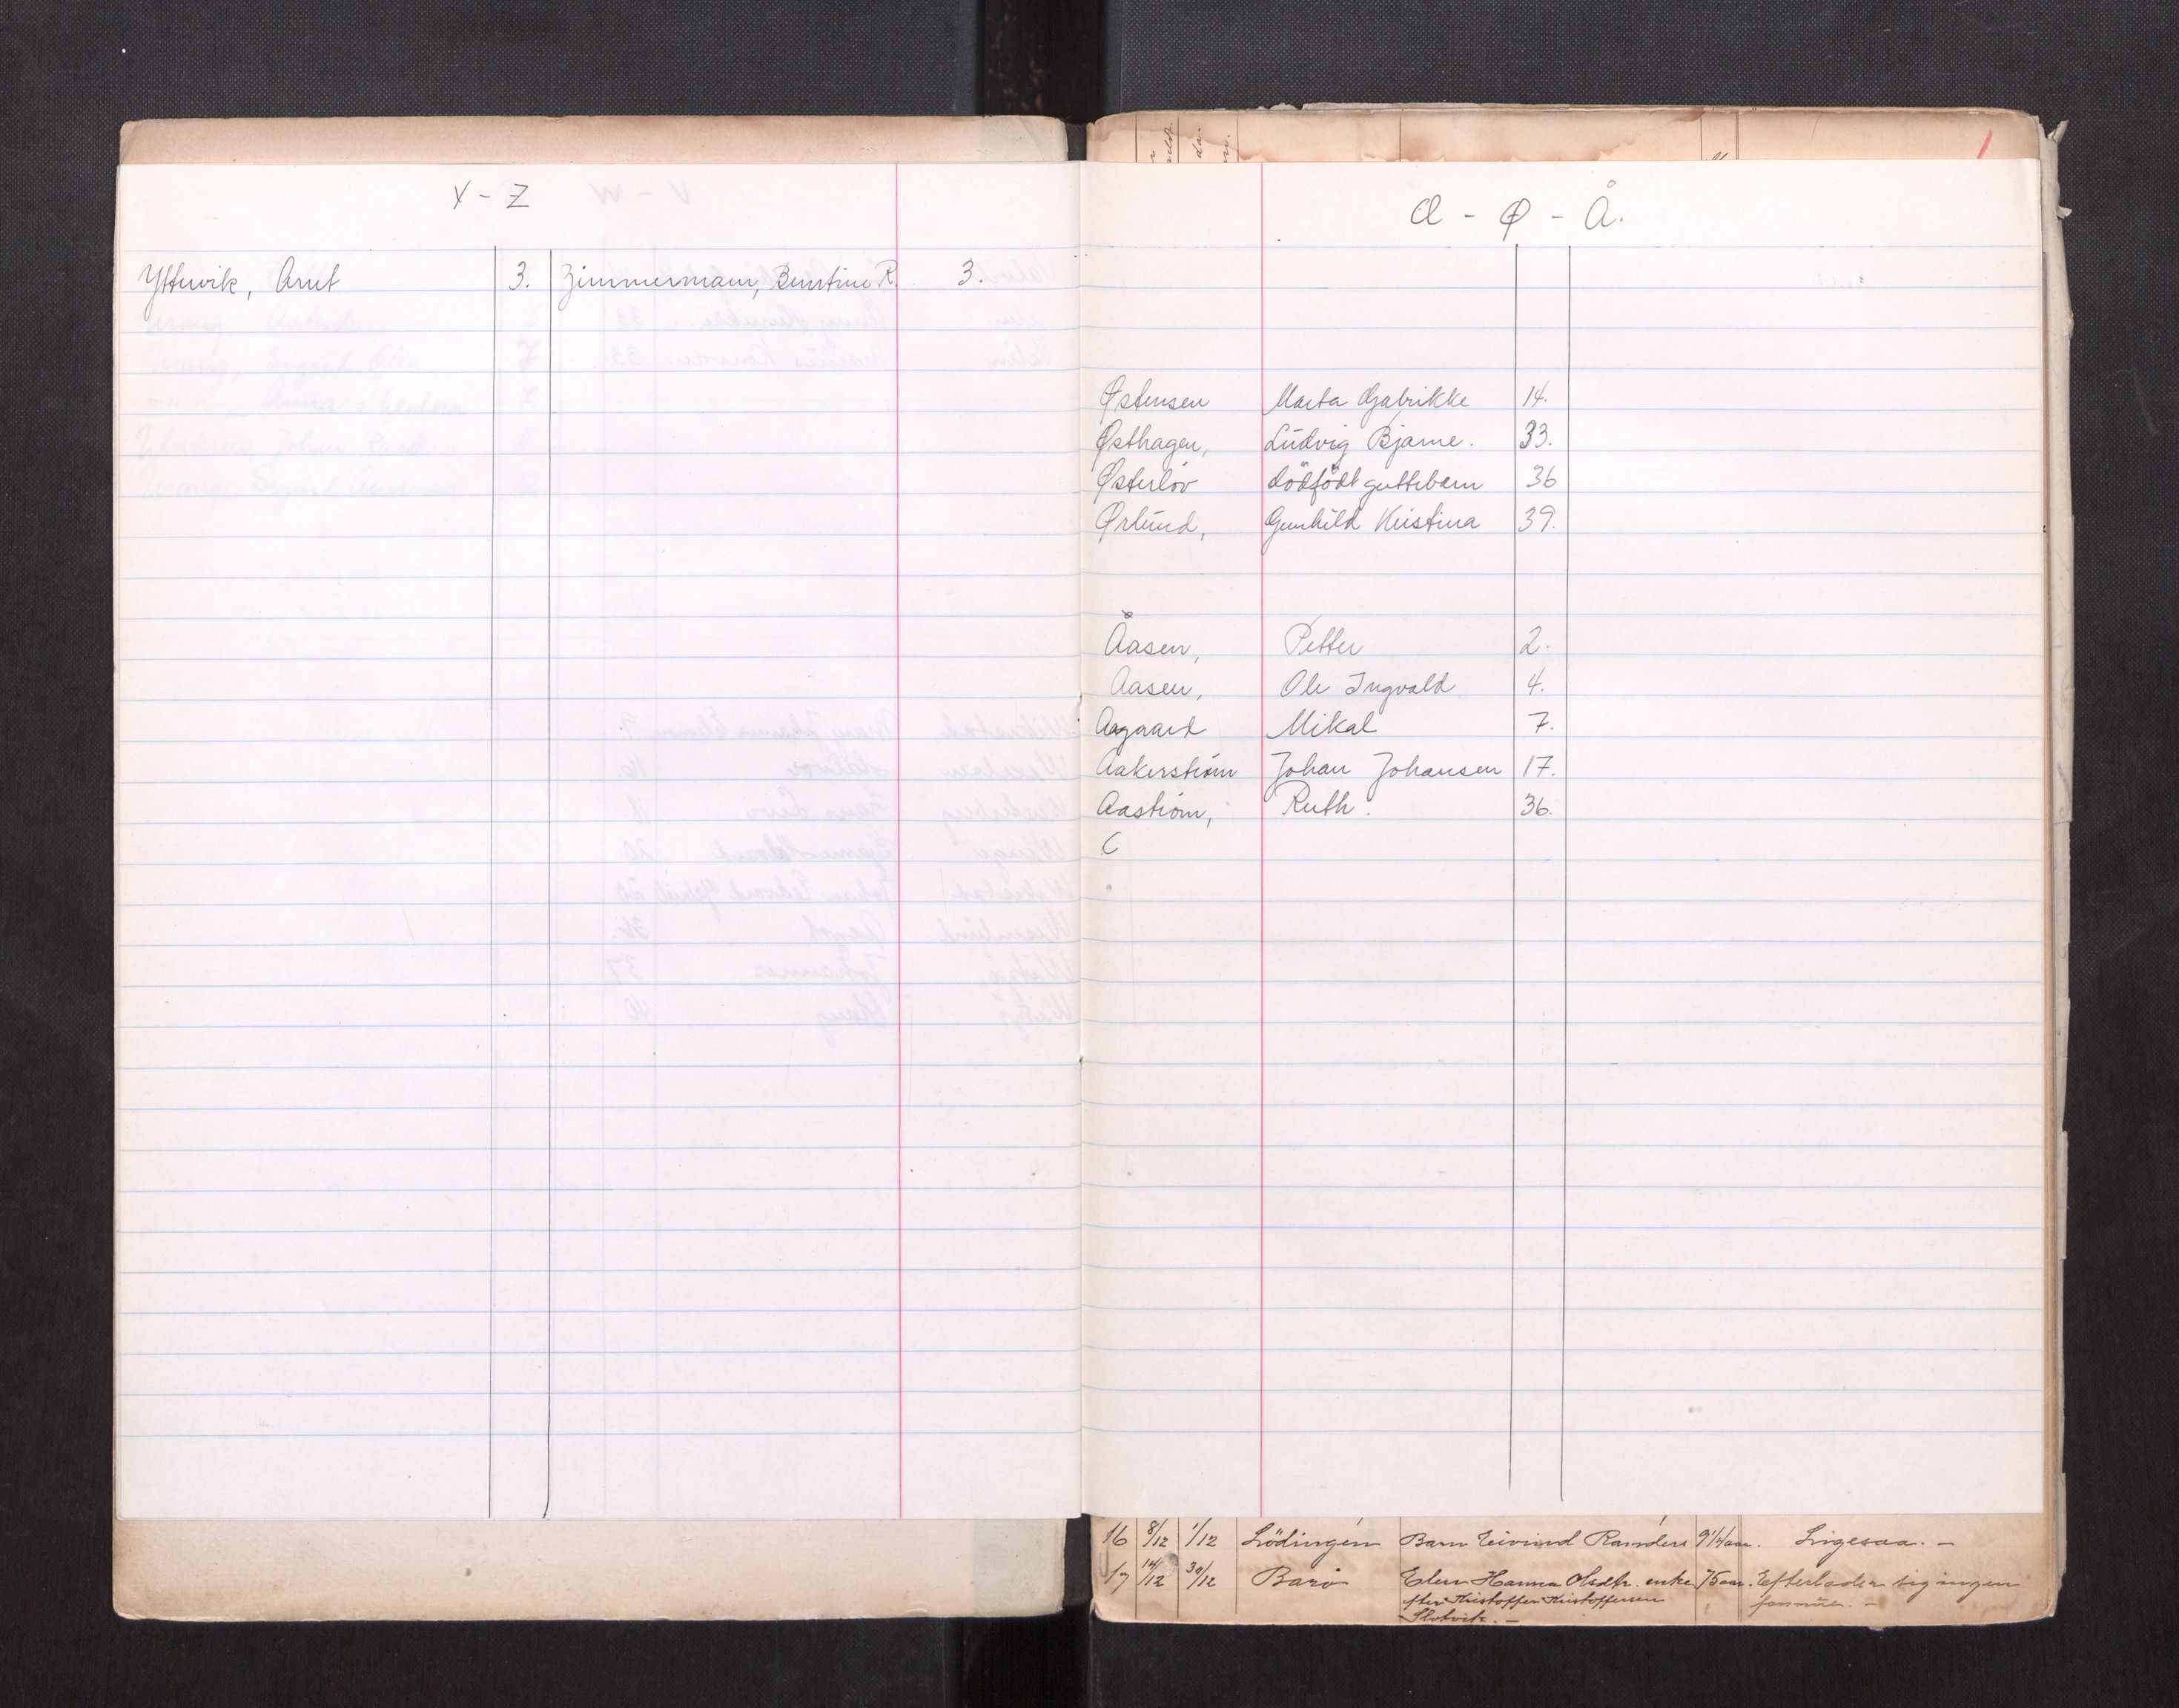 Y - Z
Yttervik, Arnt 3. Zimmermann, Berntine R. 3.
Æ - Ø - Å.
Østensen Marta Gjabrikke 14.
Østhagen, Ludvig Bjarne. 33.
Østerlöv dödfödt guttebarn 36
Ørlund, Gunhild Kristina 39.
Åasen, Petter 2.
Aasen, Ole Ingvald 4.
Aagaard Mikal 7.
Aakerström Johan Johansen 17.
Aaström, Ruth. 36.
16 8/12 1/12 Lödingen Barn Eivind Randers 9 1/4 aar. Ligesaa. -
17 14/12 30/12 Barö Elen Hanna Olsdtr. enke 75 aar. Efterlader sig ingen
efter Kristoffer Kristoffersen formue. -
Slotvik. -